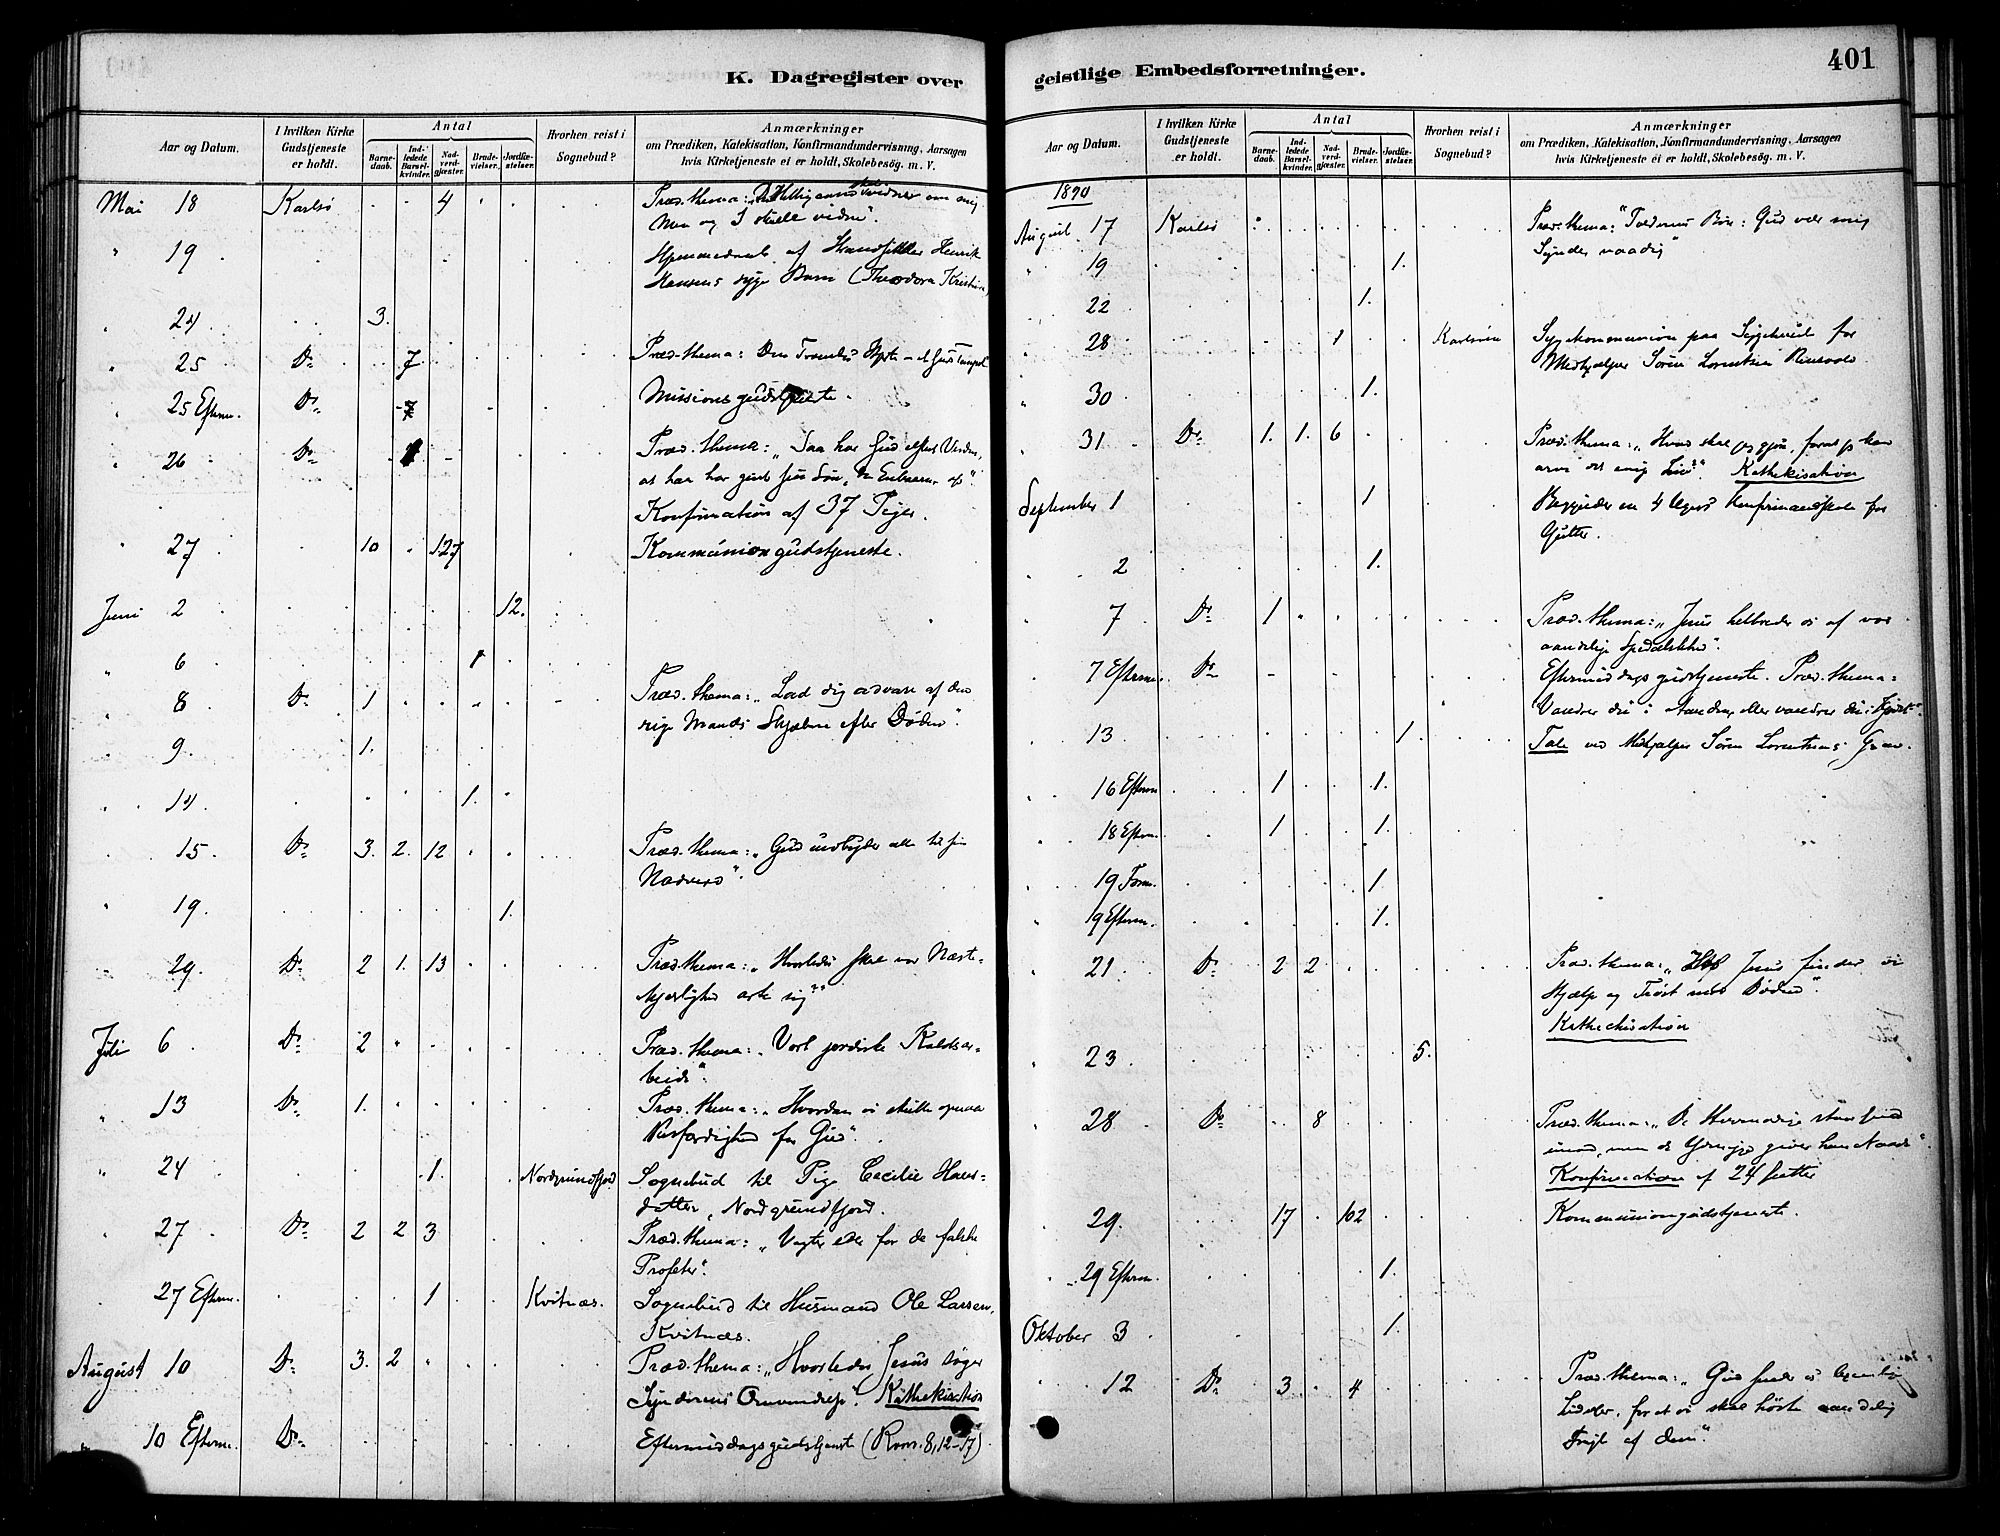 K. Dagregister over
Aar og Datum.
I hvilken Kirke Gudstjeneste er holdt.
Antal
Barnedaab.
Indledede Barselkvinder.
Nadverdgjæster.
Brudevielser.
Jordfæstelser.
Hvorhen reist i Sognebud?
Anmærkninger
om Prædiken, Katekisation, Konfirmandundervisning, Aarsagen
hvis Kirketjeneste ei er holdt, Skolebesög. m. V.
Mai 18 Karlsø 4 Præd. thema: skal vidne om mig
Men og I skulle vidne".
" 19 Hjemmedaab af Strandsidder Henrik
Hansens syge Barn (Theodora Kristine)
" 24 3.
" 25 Do 7 Præd. thema: Den Troendes Hjerte - et Guds Tempel
" 25 Efterm. Do Missionsgudstjeneste.
" 26 Do Præd. thema: "Saa har Gud elsket Verden,
at han har givet sin Søn, den Enbaarne
Konfirmation af 37 Piger.
" 27 10 127 Kommuniongudstjeneste.
Juni 2 12.
" 6 1
" 8 Do 1 Præd. thema: "Lad dig advare af den
rige Mands Skjæbne efter Døden".
" 9 1.
" 14. 1.
" 15. Do 3. 2. 12 Præd. thema: "Gud indbyder alle til sin
Nadverd".
" 19. 1.
" 29. Do 2 1. 13 Præd. thema: "Hvorledes skal vor Næste-
kjærlighed arte sig?"
Juli 6 Do 2 Præd. thema: "Vort jordiske Kaldsar-
beide".
" 13 Do 1. Præd. thema: "Hvordan vi skulle opnaa
Retfærdighed for Gud".
" 24 1. Nordgrundfjord Sognebud til Pige Cecilie Hans-
datter, Nordgrundfjord.
" 27 Do 2 2 3 Præd. thema: "Vogter eder for de falske
Profeter".
27 Efterm. 1 Kvitnæs. Sognebud til Husmand Ole Larsen,
Kvitnæs.
August 10 Do 3. 2 Præd. thema: "Hvorledes Jesus søger
Synderens Omvendelse". Kathekisation
10 Efterm. Do Eftermiddagsgudstjeneste (Rom. 8, 12-17).
geistlige Embedsforretninger.
401
Aar og Datum.
I hvilken Kirke Gudstjeneste er holdt.
Antal
Barnedaab.
Indledede Barselkvinder.
Nadverdgjæster.
Brudevielser.
Jordfæstelser.
Hvorhen reist i Sognebud?
Anmærkninger
om Prædiken, Katekisation, Konfirmandundervisning, Aarsagen
hvis Kirketjeneste ei er holdt, Skolebesög. m. V.
1890
August 17 Karlsø Præd. thema: "Tolderens Bøn: Gud vær mig
Synder naadig"
" 19 1.
22 1.
" 28 1 Karlsøen Sygekommunion paa Sygeleie for
Medhjælper Søren Lorentsen
" 30 1.
31 Do 1. 1. 6 Præd. thema: "Hvad skal jeg gjøre, forat jeg kan
arve det evig Liv?" Kathekisation
September 1 1 Begynder en 4 Ugers Konfirmandskole for
Gutter.
2 1.
7 Do 1 Præd. thema: "Jesus helbreder os af vor
aandelige Spedalskhed".
7 Efterm. Do Eftermiddagsgudstjeneste. Præd. thema:
Vandrer du i Aanden, eller vandrer du i Kjødet".
13 1. Tale ved Medhjælper Søren Lorentsens Grav.
16 Efterm 1 1.
18 Efterm. 1 1.
19 Form. 1
19 Efterm. 1.
21 Do 2 2 Præd. thema: "Hos Jesus finder vi
Hjælp og Trøst mod Døden".
Kathechisation
23 5.
28 Do 8 Præd. thema: "De Hovmodige staar Gud
imod, men de Ydmyge giver han Naade".
Konfirmation af 24 Gutter
29. 17 102 Kommuniongudstjeneste.
29 Efterm. 1.
Oktober 3 1.
12 Do 3 4 Præd. thema: "Gud sender os
Lidelser, for at vi skal høste aandelig
Frugt af dem".